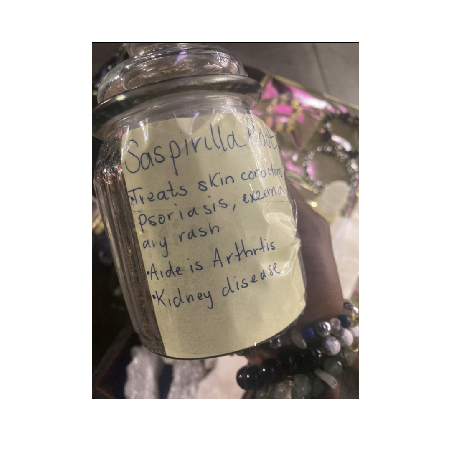 Saspirilla Root
•Treats skin conditions
Psoriasis, exzema
any rash
•Aide is Arthrtis
•Kidney disease